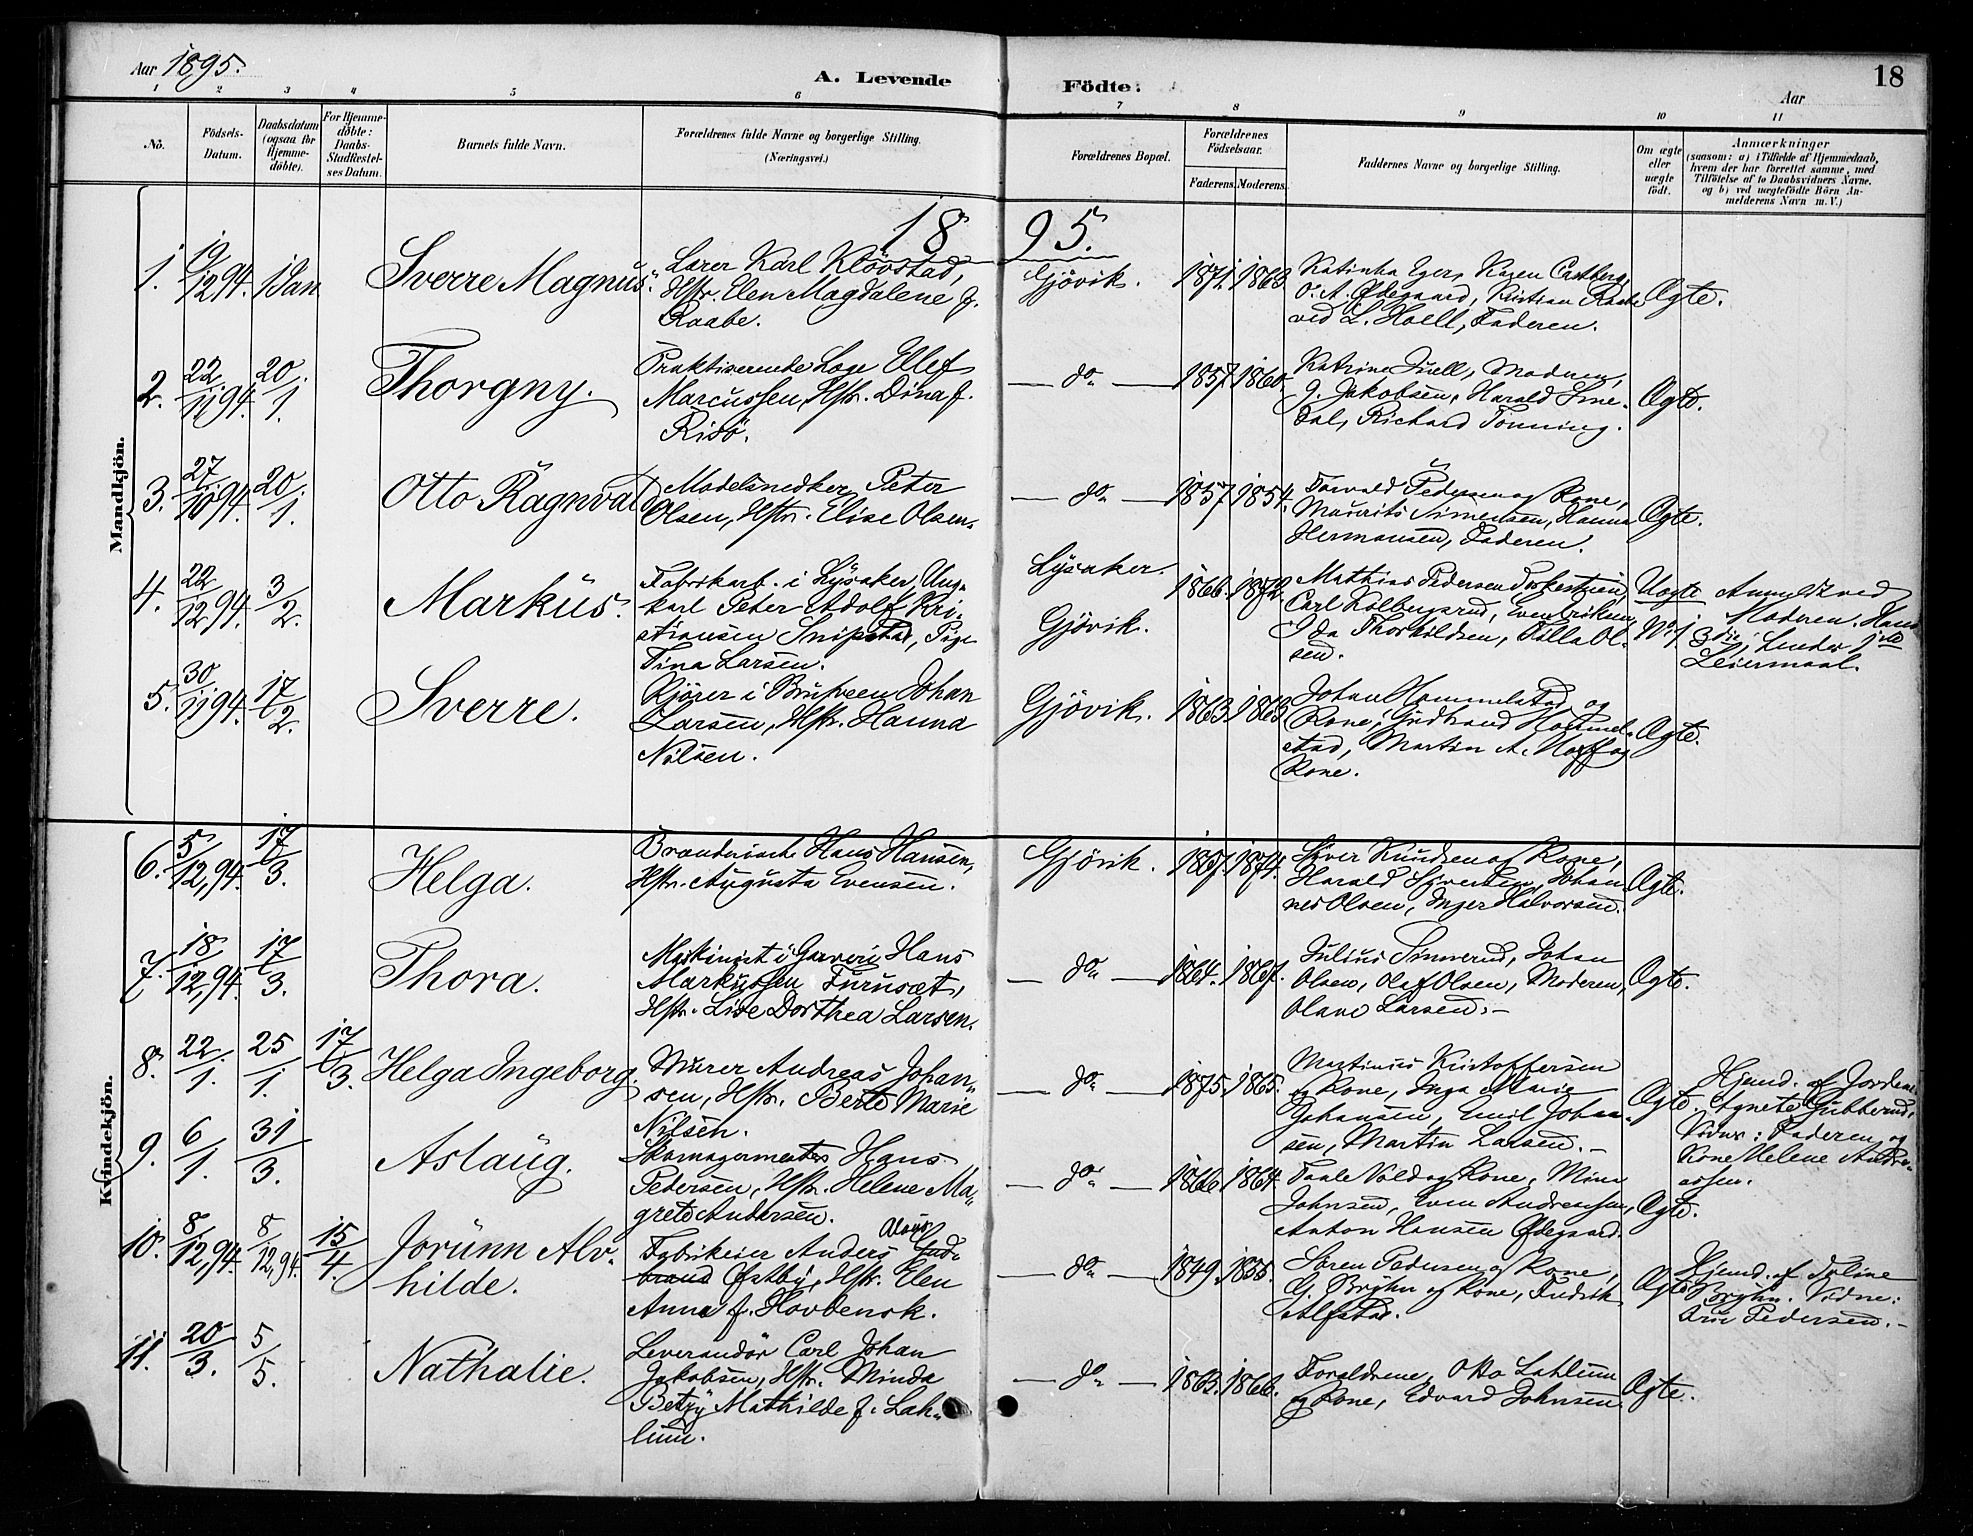 Aar 1895.
A. Levende
Födte:
Aar
18
1 2 3 4 5 6 7 8 9 10 11
No.
Födsels-
Datum.
Daabsdatum
(ogsaa for
Hjemme-
döbte).
For Hjemme-
döbte:
Daabs-
Stadfæstel-
ses Datum.
Barnets fulde Navn.
Forældrenes fulde Navne og borgerlige Stilling.
(Næringsvei.)
Forældrenes Bopæl.
Forældrenes
Födselsaar.
Faderens. Moderens.
Faddernes Navne og borgerlige Stilling.
Om ægte
eller
uægte
födt.
Anmærkninger
(saasom: a) i Tilfælde af Hjemmedaab,
hvem der har forrettet samme, med
Tilföielse af to Daabsvidners Navne.
og b) ved uægtefödte Börn An-
melderens Navn m. V.)
1895.
Mandkjön.
1. 19/12 94. 1 Jan Sverre Magnus.
Lærer Karl Klövstad,
Hstr. Elen Magdalene f.
Raabe.
Gjövik. 1871. 1863
Katinka Eger, Kagen Castberg,
O. A. Ödegaard, Kristian Raabe
ved L. Hoell, Faderen.
Ægte.
2. 22/11 94. 20/1. Thorgny.
Praktiserende Læge Ellef
Marcussen, Hstr. Dina f.
Risö.
— do — 1857. 1860.
Katrine Juell, Moderen,
J. Jakobsen, Harald Sme-
dal, Richard Tönning.
Ægte.
3. 27/10 94. 20/1. Otto Ragnvald
Modelsnedker Peter
Olsen, Hstr. Elise Olsen.
— do — 1857 1854.
Torvald Pedersen og Kone,
Maurits Simensen, Hanna
Hermansen, Faderen.
Ægte.
4. 22/12 94. 3/2. Markus.
Fabrikarb. i Lysaker, Ung-
karl Peter Adolf Kri-
stiansen Snipstad, Pige
Tina Larsen.
Lysaker.
Gjövik.
1866. 1872.
Mathias Pedersen
Carl Kolbergsrud, Even Eriksen,
Ida Thorkildsen, Tilla Ol-
sen.
Uægte
No 1.
Anmeldt ved
Moderen. Hans
3die, hendes 1ste
Leiermaal.
5. 30/11 94. 17/2. Sverre.
Kjörer i Johan
Larsen, Hstr. Hanna
Nilsen.
Gjövik. 1863. 1863
Johan Hammelstad og
Kone, Gudbrand Hammel-
stad, Martin A. Hoff og
Kone.
Ægte.
Kvindekjön.
6. 5/12, 94. 17/3. Helga.
Hans Hansen,
Hstr. Augusta Evensen.
Gjövik. 1867. 1874.
Syver Knudsen og Kone,
Harald Syversen, Johan-
nes Olsen, Inger Halvorsen.
Ægte.
7. 18/12, 94. 17/3. Thora.
Maskinist i Garveri Hans
Markussen Furusæt,
Hstr. Lise Dorthea Larsen.
— do — 1864. 1867.
Julius Sinnerud, Johan
Olsen, Olaf Olsen, Moderen,
Olave Larsen.—
Ægte.
8. 22/1. 25/1. 17/3. Helga Ingeborg.
Murer Andreas Johan-
sen, Hstr. Berte Marie
Nilsen.
— do — 1875. 1865.
Martinus Kristoffersen
og Kone, Inga Marie
Johansen, Emil Johan-
sen, Martin Larsen.—
Ægte.
Hjemd. af Jordem.
Agnete Gubberud,
Vidner: Faderen og
Kone Helene Andre-
assen.
9. 6/1. 31/3. Aslaug.
Skomagermester Hans
Pedersen, Hstr. Helene Ma-
grete Andersen.
— do — 1866 1864.
Paale Vold og Kone, Mina
Johnsen, Even Andreassen,
Anton Hansen Ödegaard.
Ægte.
10. 8/12, 94. 8/12, 94. 15/4. Jorunn Alv-
hilde.
Fabrikeier Anders Gud-
brand Östby, Hstr. Elen
Anna f. Hovdenak.
— do — 1849. 1855.
Sören Pedersen og Kone,
G. Bryhn og Kone, Fredrik
Alfstad.
Ægte
Hjemd. af Toline
Bryhn. Vidne:
Pedersen.—
11. 20/3. 5/5. Nathalie.
Leverandör Carl Johan
Jakobsen, Hstr. Minda
Betzy Mathilde f. Lah-
lum.
— do — 1863. 1866.
Forældrene, Otto Lahlum
og Kone, Edvard Johnsen.
Ægte.